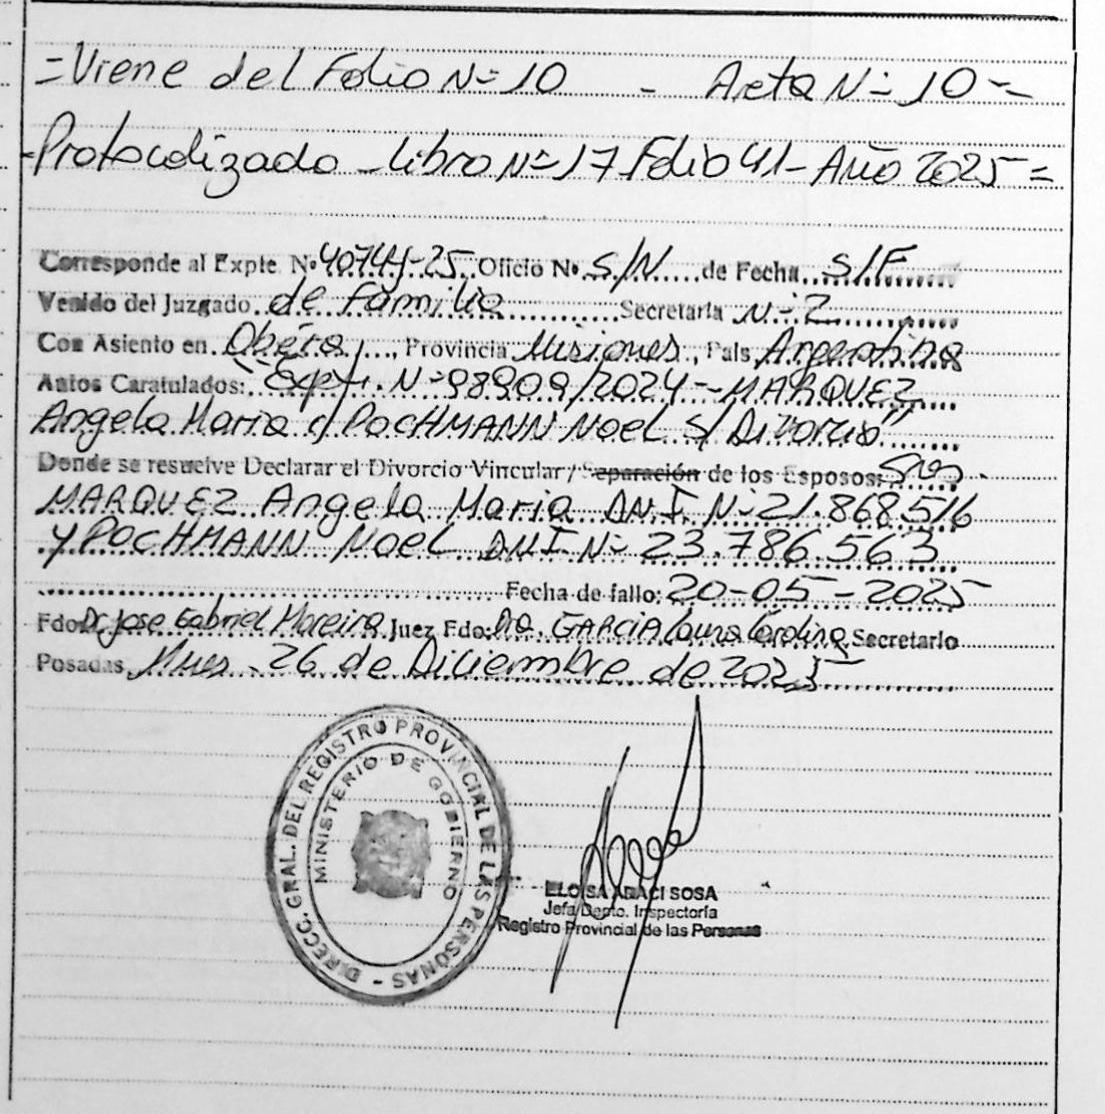 =Viene del Folio Nº 10 - Acta Nº 10=
=Protocolizado - Libro Nº 17 Folio 41 - Año 2025=
Corresponde al Expte. Nº 40744-25 Oficio Nº S/N de Fecha S/F
Venido del Juzgado de Familia Secretaria Nº 2
Con Asiento en Oberá, Provincia Misiones, País Argentina
Autos Caratulados: "Expte. Nº 98909/2024 - MARQUEZ
Angela Maria c/ POCHMANN Noel s/ Divorcio"
Donde se resuelve Declarar el Divorcio Vincular / Separación de los Esposos: Sres.
MARQUEZ Angela Maria DNI Nº 21.868.516
y POCHMANN Noel DNI Nº 23.786.563
Fecha de fallo: 20-05-2025
Fdo: Dr. Jose Gabriel Moreira Juez Fdo: Dra. GARCIA Laura Carolina Secretario
Posadas, Mnes. 26 de Diciembre de 2025
DIRECC. GRAL. DEL REGISTRO PROVINCIAL DE LAS PERSONAS -
MINISTERIO DE GOBIERNO
ELOISA ARACI SOSA
Jefa Depto. Inspectoría
Registro Provincial de las Personas